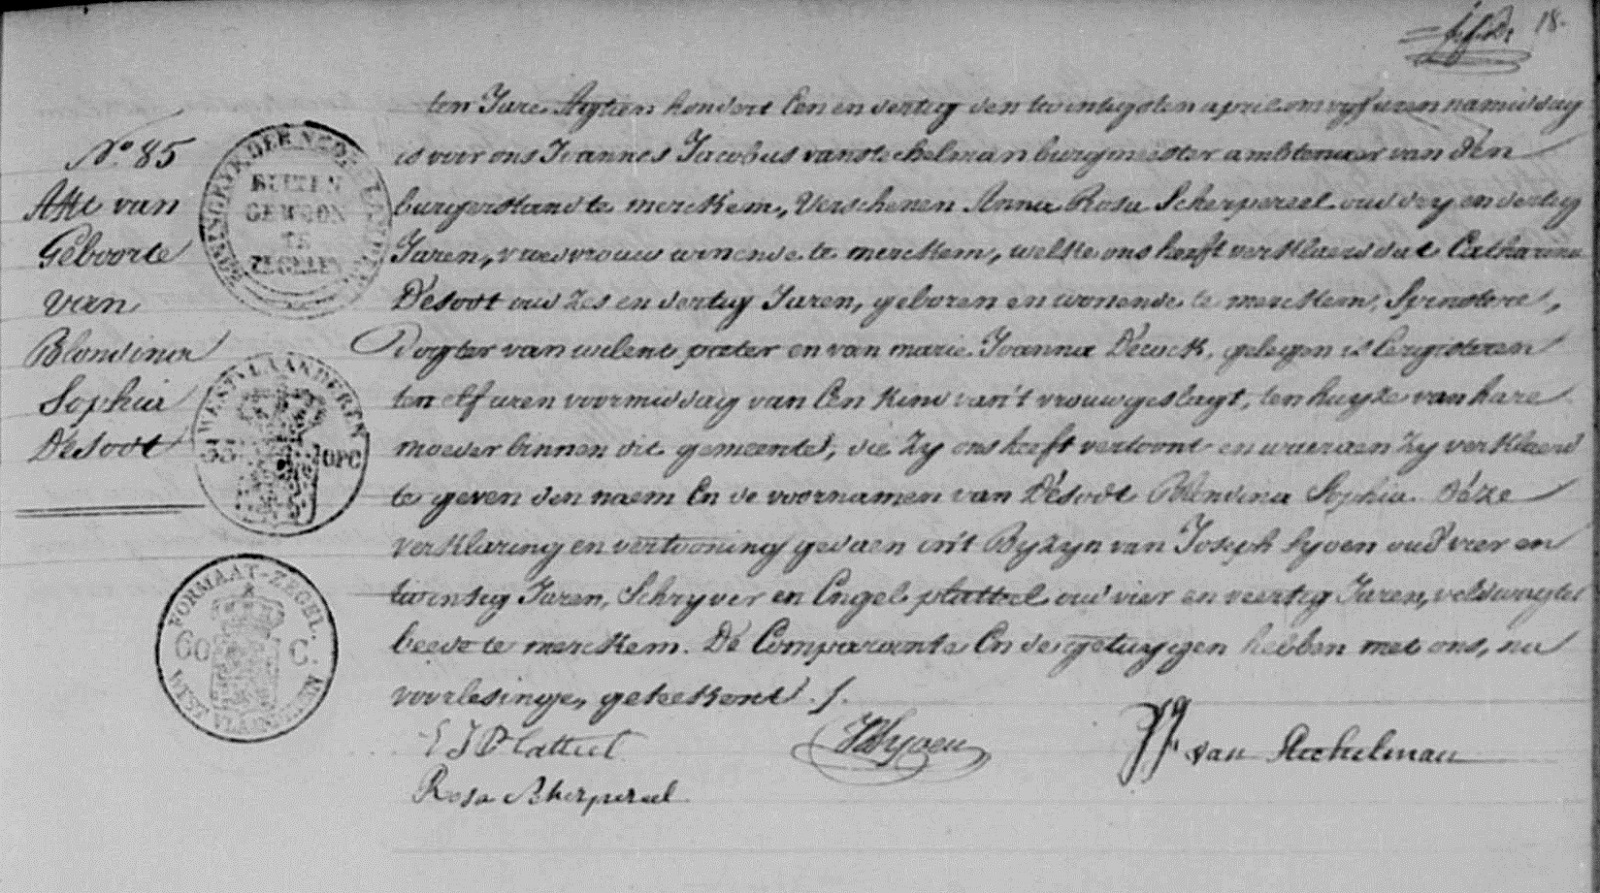 18.
N.º 85
Akte van
Geboorte
van
Blondina
Sophia
Desodt
KONINGRYK DER NEDERLANDEN
BUITEN
GEWOON
TE
ZEGELEN
WEST-VLAANDEREN
33 OPC
FORMAAT-ZEGEL.
60 C.
WEST VLAANDEREN
ten Jare Agtien hondert Een en dertig den twintigsten april om vyf uren namiddag
is voor ons Joannes Jacobus vanstechelman burgmeester ambtenaer van den
burgerstand te merckem, Verschenen Anna Rosa Scherpereel oud dry en dertig
Jaren, vroedvrouw wonende te merckem, welke ons heeft verklaerd dat Catharina
Desodt oud zes en dertig Jaren, geboren en wonende te merckem, Spinstere,
Dogter van wilent pieter en van marie Joanna Decock, gelegen is Eergisteren
ten elf uren voormiddag van Een kind van't vrouwgeslagt, ten huyze van hare
moeder binnen dit gemeente, die zy ons heeft vertoont en waeraen zy verklaerd
te geven den naem En de voornamen van Desodt Blondina Sophia. Déze
verklaring en vertooning gedaen in't Byzyn van Joseph Syoen oud vier en
twintig Jaren, Schryver en Engel platteel oud vier en veertig Jaren, veldwagter
beede te merckem. De Comparante En de getuygen hebben met ons, na
voorlesinge, geteekent ./.
E J Platteel
Syoen
JJ. van Stechelman
Rosa Scherpereel